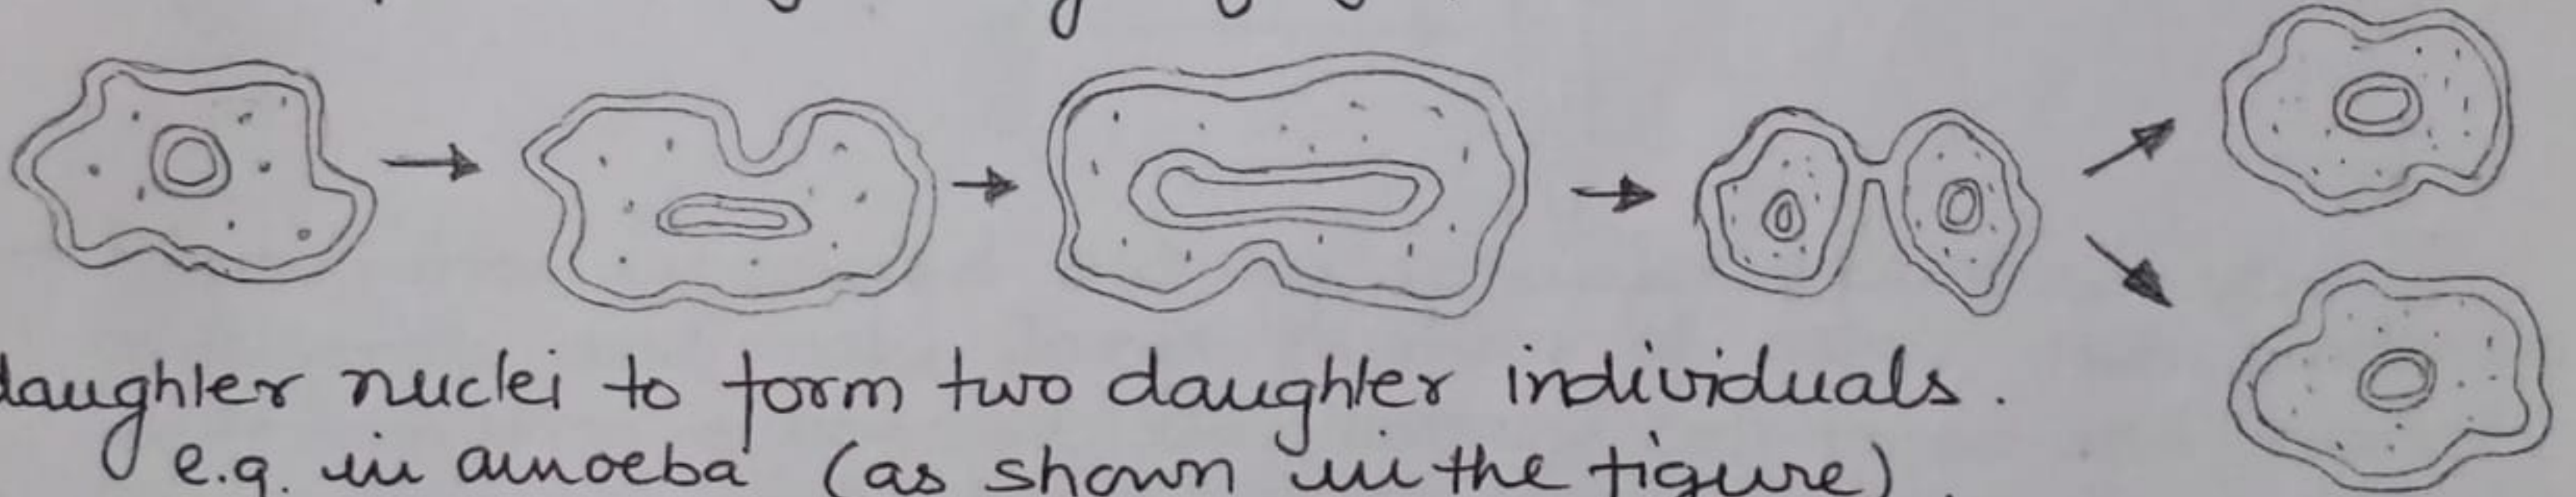 daughter nuclei to form two daughter individuals.
e.g. in amoeba (as shown in the figure).